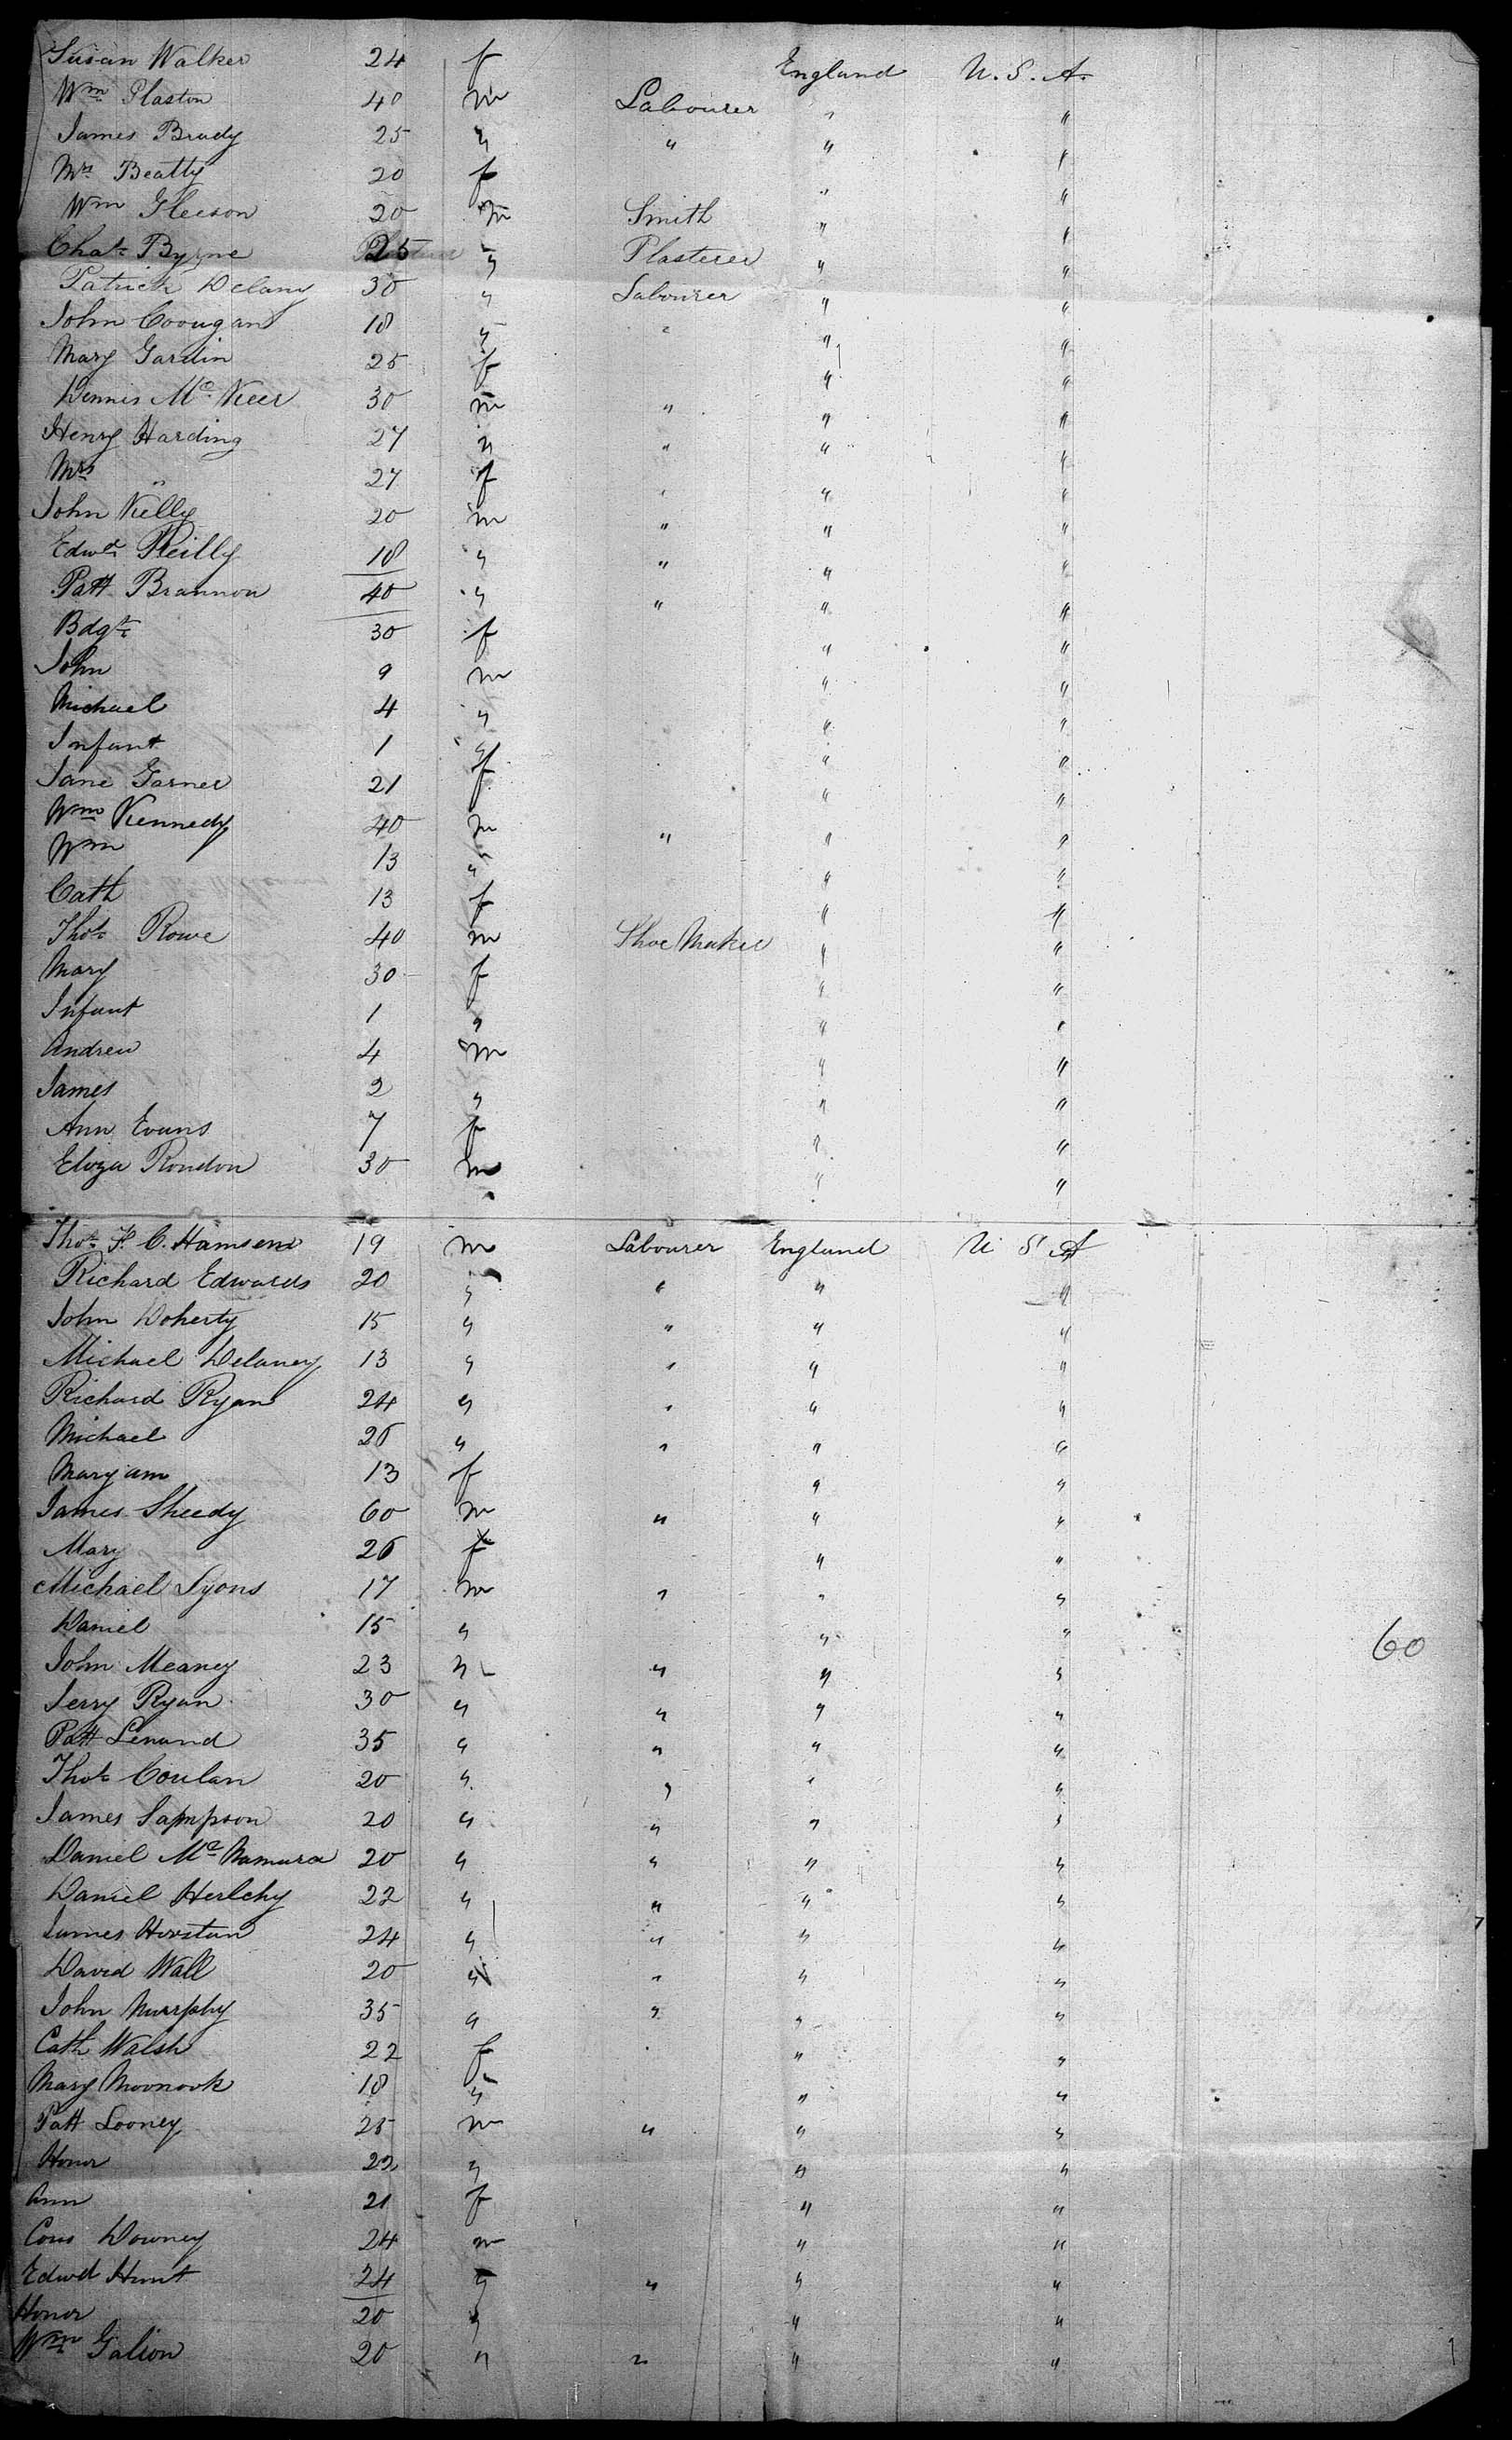 Susan Walker 24 f England U. S. A.
Wm Plaston 40 m Labourer " "
James Brady 25 " " " "
Mrs Beatty 20 f " "
Wm Gleeson 20 m Smith " "
Chas Byrne 25 " Plasterer " "
Patrick Delany 30 " Labourer " "
John Coougan 18 " " " "
Mary Gardin 25 f " "
Dennis Mc Keer 30 m " " "
Henry Harding 27 " " " "
Mrs " 27 f " " "
John Kelly 20 m " " "
Edwd Reilly 18 " " " "
Patt Brannon 40 " " " "
Bdgt 30 f " "
John 9 m " "
Michael 4 " " "
Infant 1 " " "
Jane Garner 21 f " "
Wm Kennedy 40 m " " "
Wm 13 " " "
Cath 13 f " "
Thos Rowe 40 m Shoe Maker " "
Mary 30 f " "
Infant 1 " " "
Andrew 4 m " "
James 2 " " "
Ann Evans 7 f " "
Eliza Rondon 30 m " "
Thos F. C. Hamsem 19 m Labourer England U S A
Richard Edwards 20 " " " "
John Doherty 15 " " " "
Michael Delaney 13 " " " "
Richard Ryan 24 " " " "
Michael 26 " " " "
Maryann 13 f " "
James Sheedy 60 m " " "
Mary 26 f " "
Michael Lyons 17 m " " "
Daniel 15 " " "
60
John Meaney 23 " " " "
Jerry Ryan 30 " " " "
Patt Lenand 35 " " " "
Thos Conlan 20 " " " "
James Sampson 20 " " " "
Daniel Mc Namara 20 " " " "
Daniel Herlehy 22 " " " "
James Hoostan 24 " " " "
David Wall 20 " " " "
John Murphy 35 " " " "
Cath Walsh 22 f " "
Mary Moonook 18 " " "
Patt Looney 25 m " " "
Honor 22 " " "
Ann 21 f " "
Cons Downey 24 m " "
Edwd Hunt 24 " " " "
Honor 20 " " "
Wm Galion 20 " " " "